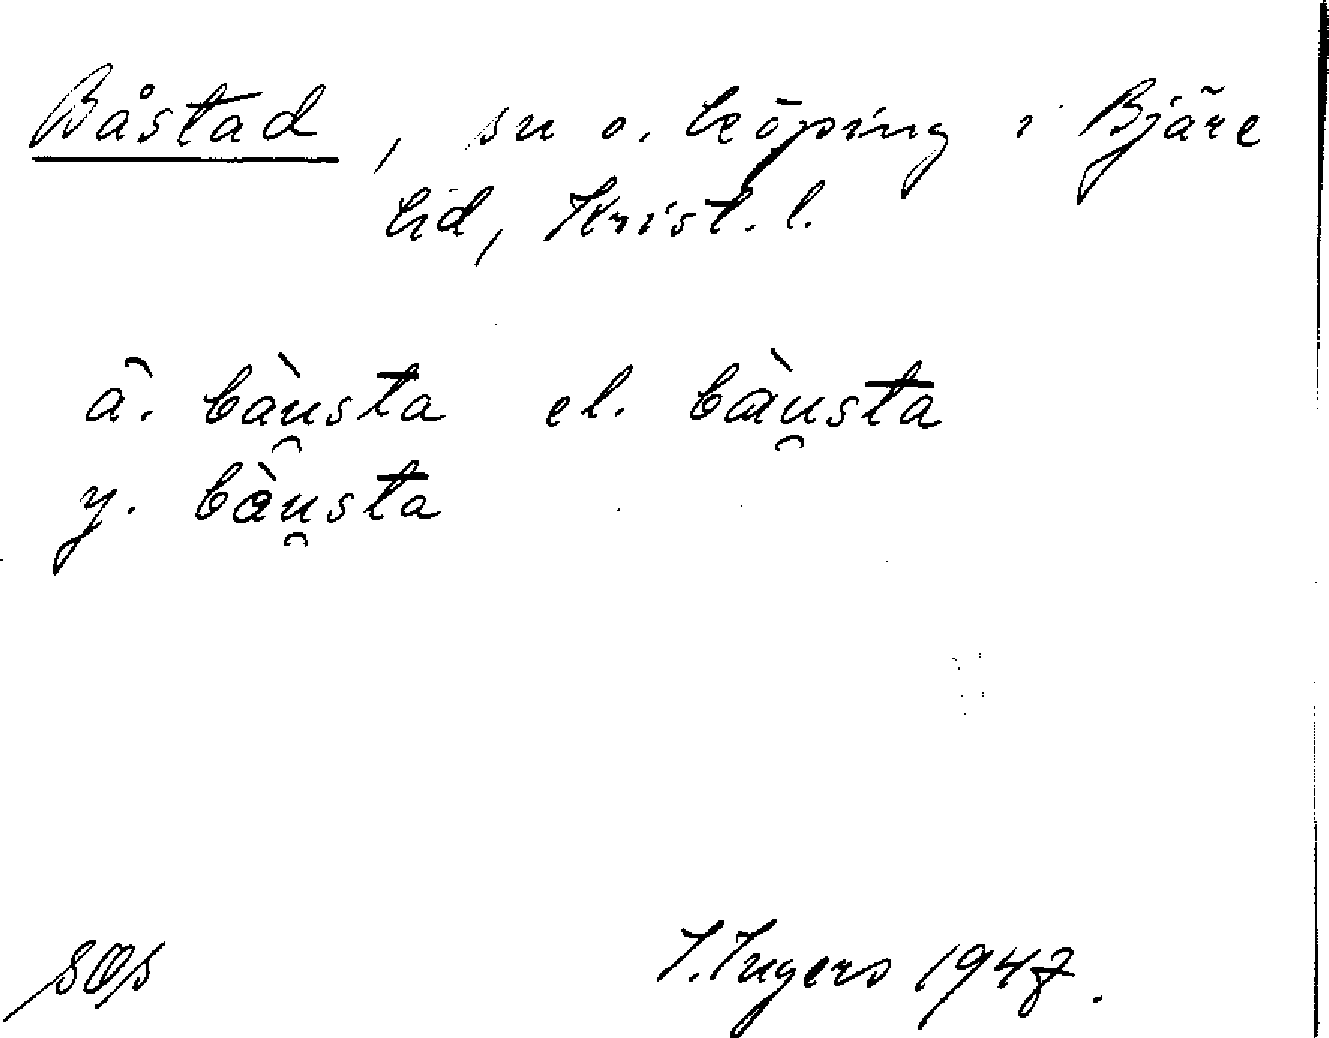 Båstad, sn o. köping i Bjäre
hd, Krist. l.
ä. bàu̯sta el. bàu̯sta
y. bàu̯sta
I. Ingers 1947.